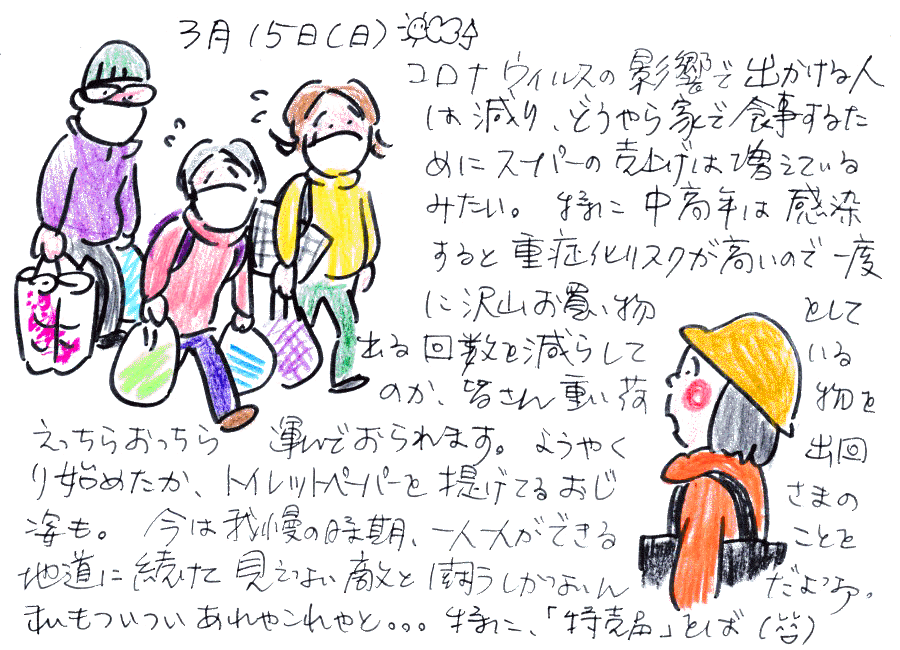 3月15日(日)
コロナウイルスの影響で出かける人
は減り、どうやら家で食事するた
めにスーパーの売上げは増えている
みたい。特に中高年は感染
すると重症化リスクが高いので一度
に沢山お買い物 として
出る回数を減らして いる
のか、皆さん重い荷 物を
えっちらおっちら 運んでおられます。ようやく 出回
り始めたか、トイレットペーパーを提げてるおじ さまの
姿も。今は我慢の時期、一人一人ができる ことを
地道に続けて見えない敵と闘うしかないん だよなァ。
私もついついあれやこれやと...特に、「特売品」としば(笑)